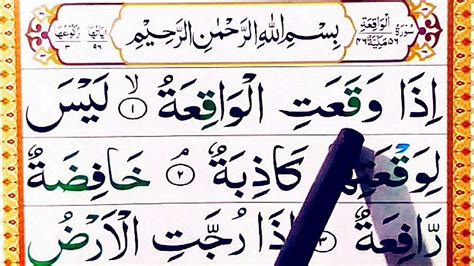 سُوْرَةُ الْوَاقِعَةِ مَكِّيَّةٌ بِسْمِ اللهِ الرَّحْمٰنِ الرَّحِيْمِ اٰيَاتُهَا رُكُوْعُهَا ٣
اِذَا وَقَعَتِ الْوَاقِعَةُ ۙ ١ لَيْسَ
لِوَقْعَتِهَا كَاذِبَةٌ ۘ ٢ خَافِضَةٌ
رَّافِعَةٌ ۙ ٣ اِذَا رُجَّتِ الْاَرْضُ